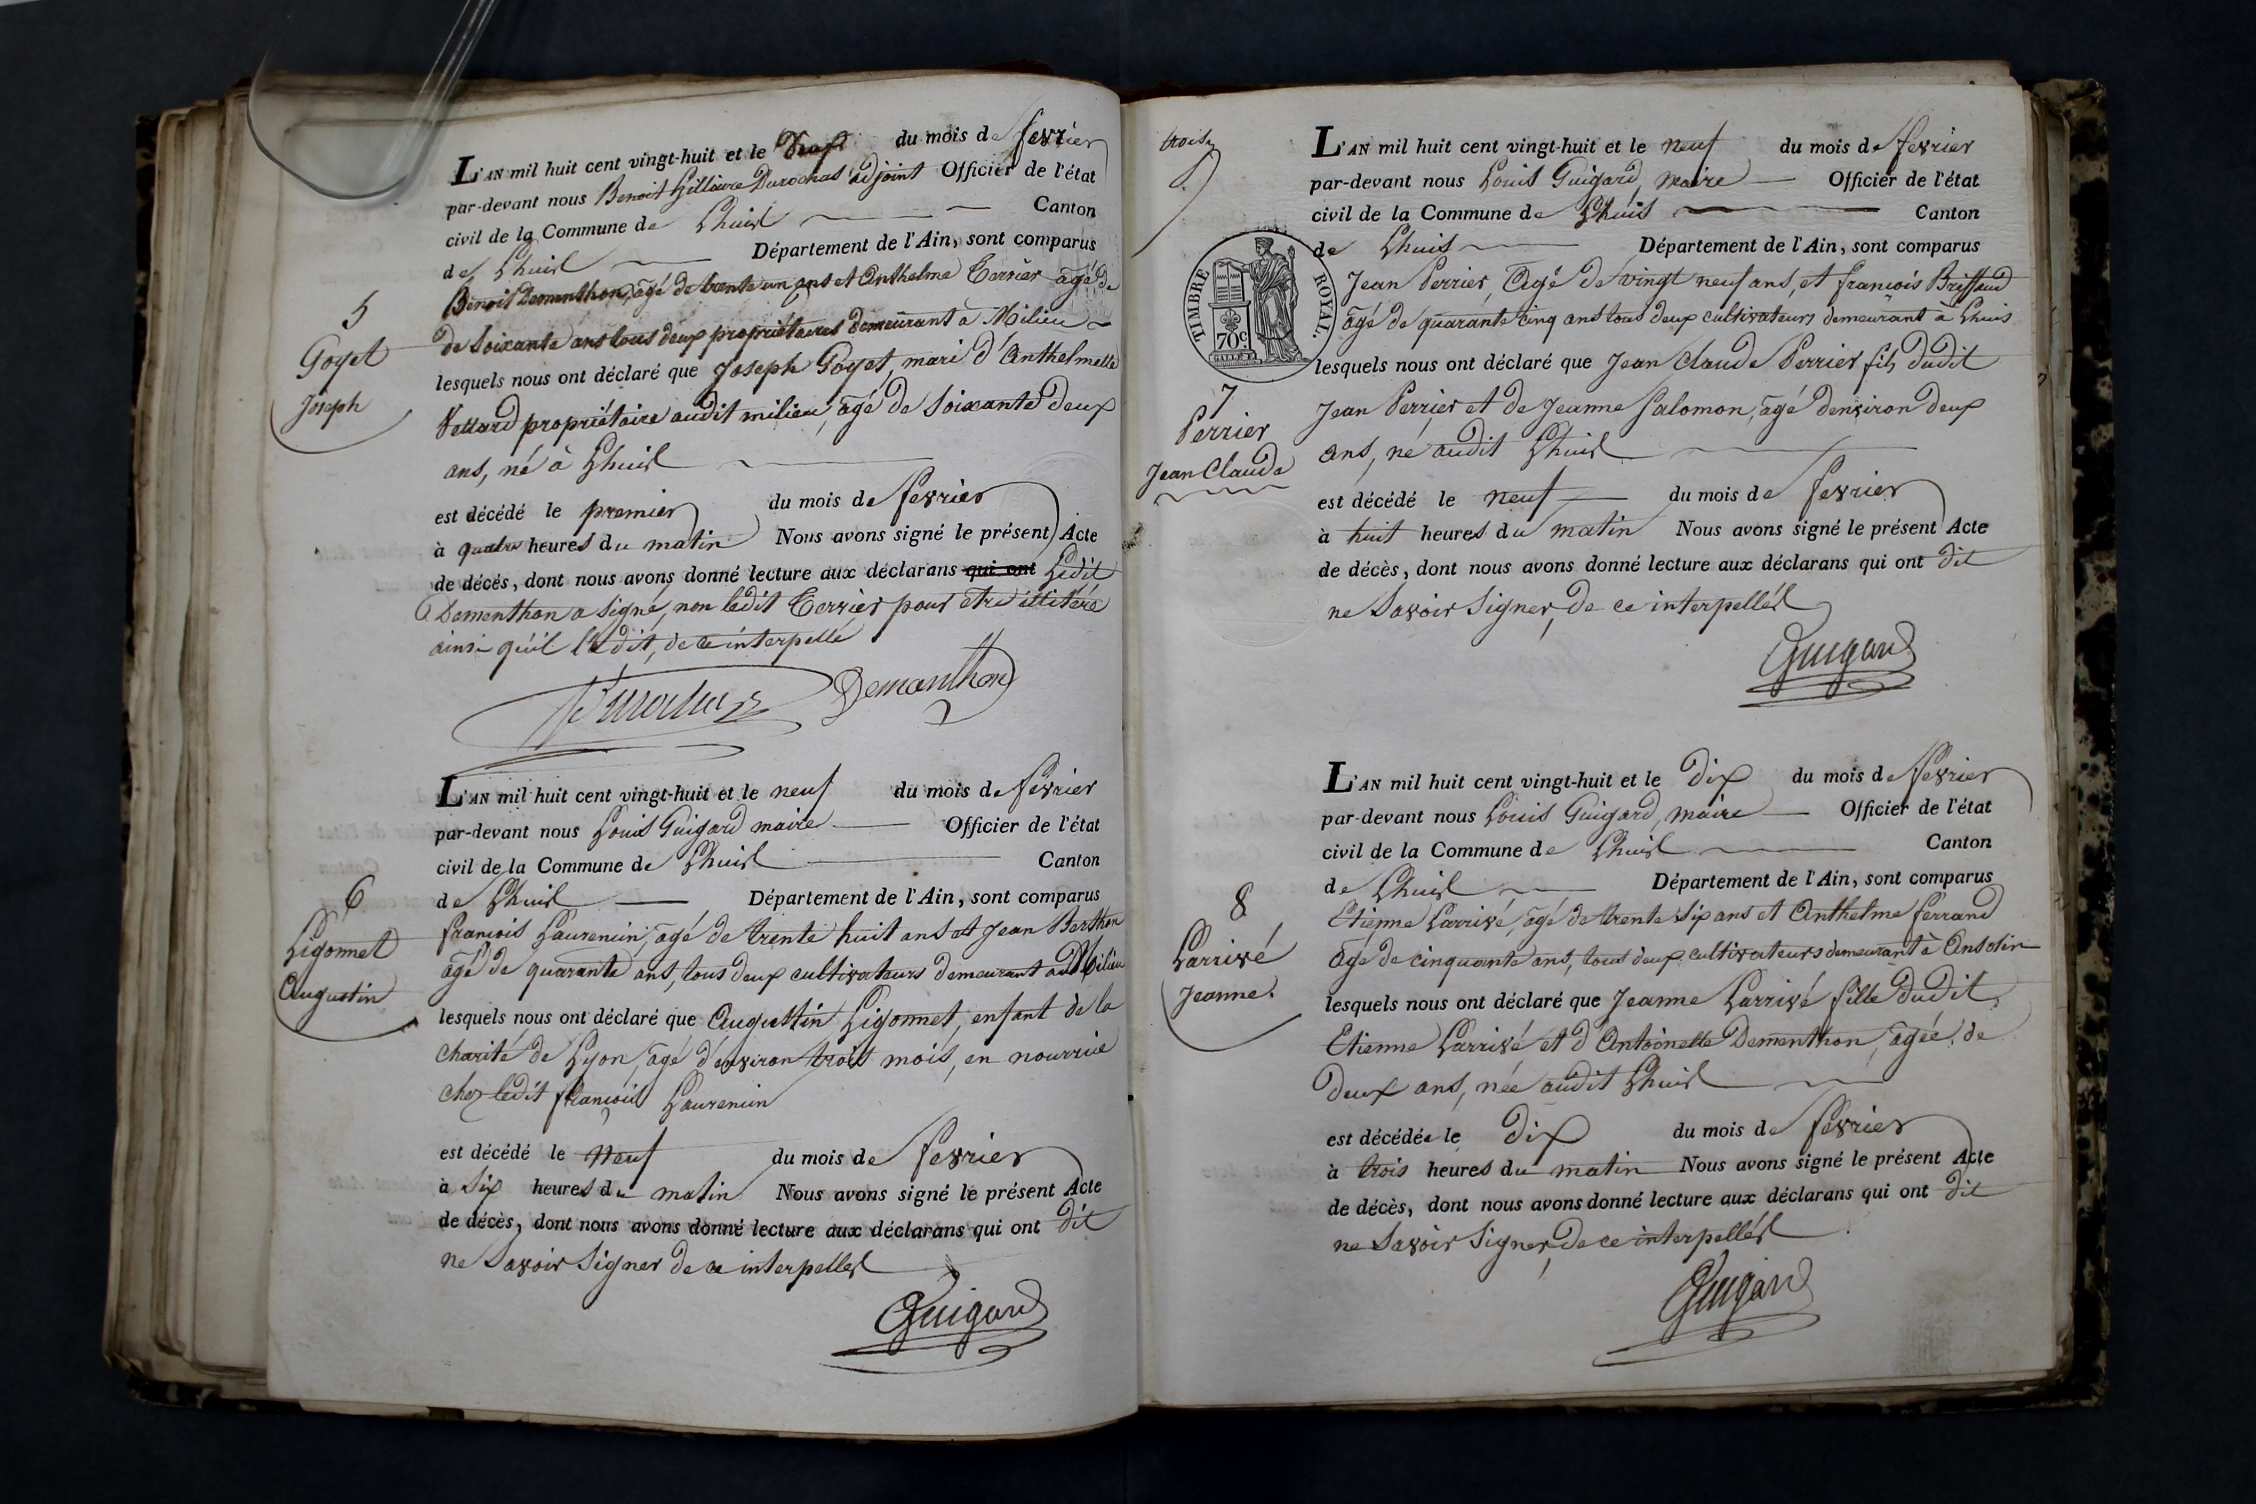 L'AN mil huit cent vingt-huit et le deux du mois de fevrier
par-devant nous Benoit Hillaire Durochas adjoint Officier de l'état
civil de la Commune de Lhuis Canton
de Lhuis Département de l'Ain, sont comparus
Benoit Dementhon, agé de trente un ans et Anthelme Terrier agé de
de soixante ans tous deux propriétaires demeurant à Milieu
5
Goyet
Joseph
lesquels nous ont déclaré que Joseph Goyet, mari d'Anthelmette
propriétaire audit milieu, agé de soixante deux
ans, né à Lhuis
est décédé le premier du mois de fevrier
à quatre heures du matin Nous avons signé le présent Acte
de décés, dont nous avons donné lecture aux déclarans qui ont Ledit
Dementhon a signé, non ledit Terrier pour etre illiteré
ainsi qu'il l'a dit, de ce interpellé
Demanthon
L'AN mil huit cent vingt-huit et le neuf du mois de fevrier
par-devant nous Louis Guigard maire Officier de l'état
civil de la Commune de Lhuis Canton
de Lhuis Département de l'Ain, sont comparus
6
Ligonnet
Augustin
francois Laurencin, agé de trente huit ans et Jean Berthon
agé de quarante ans, tous deux cultivateurs demeurant au Milieu
lesquels nous ont déclaré que Augustin Ligonnet, enfant de la
charité de Lyon, agé d'environ trois mois, en nourrice
chez ledit francois Laurencin
est décédé le neuf du mois de fevrier
à six heures du matin Nous avons signé le présent Acte
de décés, dont nous avons donné lecture aux déclarans qui ont dit
ne Savoir Signer de ce interpellés
Guigard
trois
L'AN mil huit cent vingt-huit et le neuf du mois de fevrier
par-devant nous Louis Guigard, maire Officier de l'état
civil de la Commune de Lhuis Canton
de Lhuis Département de l'Ain, sont comparus
TIMBRE ROYAL.
70c.
Jean Perrier, Agé de vingt neuf ans, et francois Briffaud
agé de quarante cinq ans tous deux cultivateurs demeurant à Lhuis
7
Perrier
Jean Claude
lesquels nous ont déclaré que Jean Claude Perrier fils dudit
Jean Perrier, et de Jeanne Salomon, agé denviron deux
ans, né audit Lhuis
est décédé le neuf du mois de fevrier
à huit heures du matin Nous avons signé le présent Acte
de décès, dont nous avons donné lecture aux déclarans qui ont dit
ne Savoir Signer, de ce interpellés
Guigard
L'AN mil huit cent vingt-huit et le dix du mois de fevrier
par-devant nous Louis Guigard, maire Officier de l'état
civil de la Commune de Lhuis Canton
de Lhuis Département de l'Ain, sont comparus
8
Larrivé
Jeanne.
Etienne Larrivé, agé de trente six ans et Anthelme ferrand
agé de cinquante ans, tous deux cultivateurs demeurant à Ansolin
lesquels nous ont déclaré que Jeanne Larrivé fille dudit
Etienne Larrivé et d'Antoinette Dementhon, agée de
deux ans, née audit Lhuis
est décédée le dix du mois de fevrier
à trois heures du matin Nous avons signé le présent Acte
de décès, dont nous avons donné lecture aux déclarans qui ont dit
ne Savoir Signer, de ce interpellés
Guigard